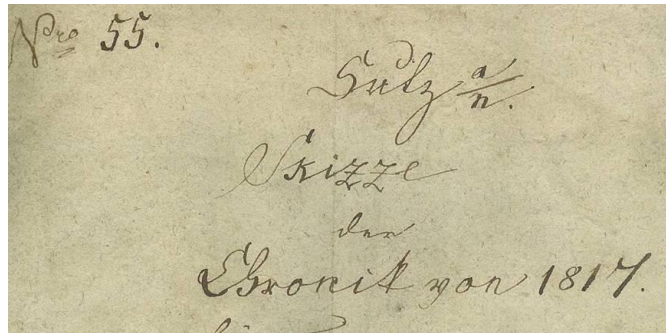 Nro 55.
Sulz a/n.
Skizze
der
Chronik von 1817.